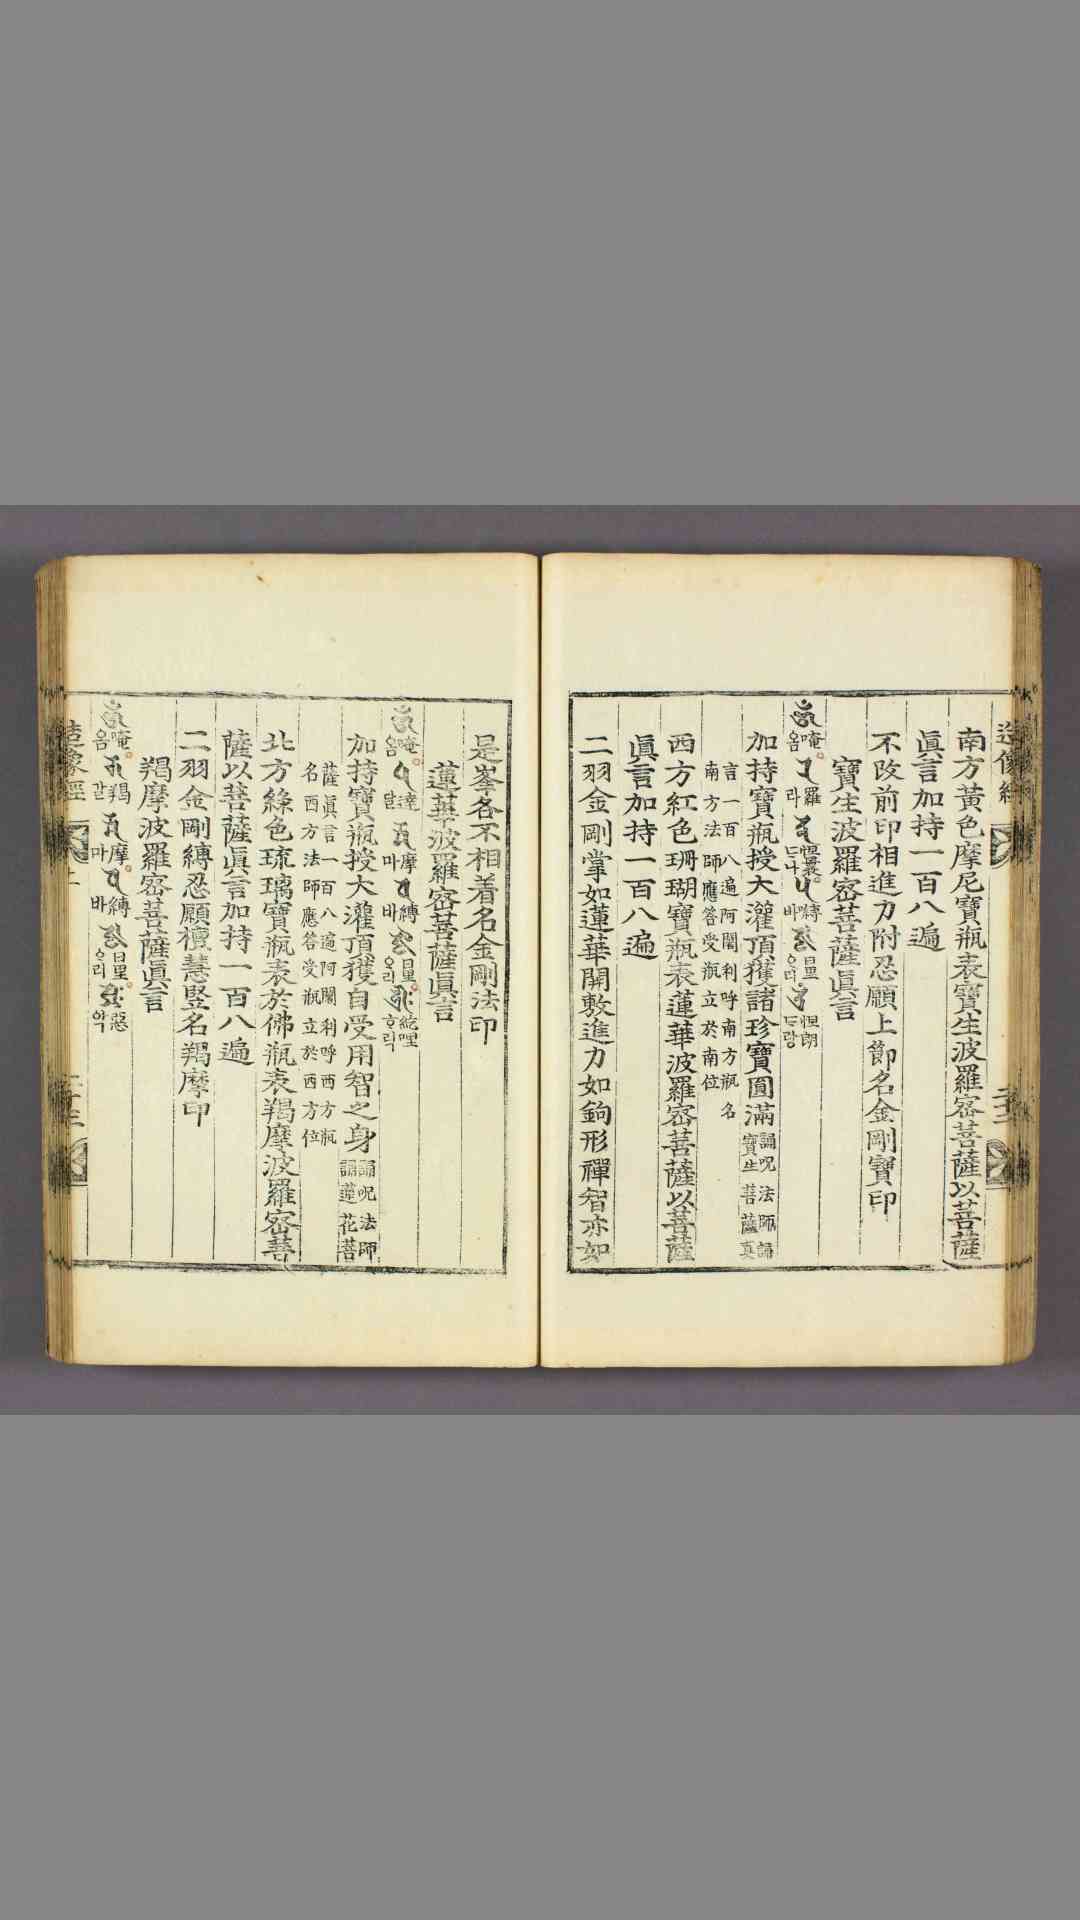 造像經
南方黃色摩尼寶瓶表寶生波羅密菩薩以菩薩
眞言加持一百八遍
不改前印相進力附忍願上節名金剛寶印
寶生波羅密菩薩眞言
唵 羅 怛曩 嚩 日里 怛朗
옴 라 드나 바 으리 드랑
加持寶瓶授大灌頂獲諸珍寶圓滿 誦呪法師誦
寶生菩薩眞
言一百八遍阿闍利呼南方瓶名
南方法師應答受瓶立於南位
西方紅色珊瑚寶瓶表蓮華波羅密菩薩以菩薩
眞言加持一百八遍
二羽金剛掌如蓮華開敷進力如鉤形禪智亦如
是峯各不相着名金剛法印
蓮華波羅密菩薩眞言
唵 達 摩 嚩 日里 紇哩
옴 달 마 바 으리 흐릭
加持寶瓶授大灌頂獲自受用智之身 誦呪法師
誦蓮花菩
薩眞言一百八遍阿闍利呼西方瓶
名西方法師應答受瓶立於西方位
北方綠色琉璃寶瓶表於佛瓶表羯摩波羅密菩
薩以菩薩眞言加持一百八遍
二羽金剛縛忍願檀慧竪名羯摩印
羯摩波羅密菩薩眞言
唵 羯 摩 嚩 日里 惡
옴 갈 마 바 으리 악
造像經 上